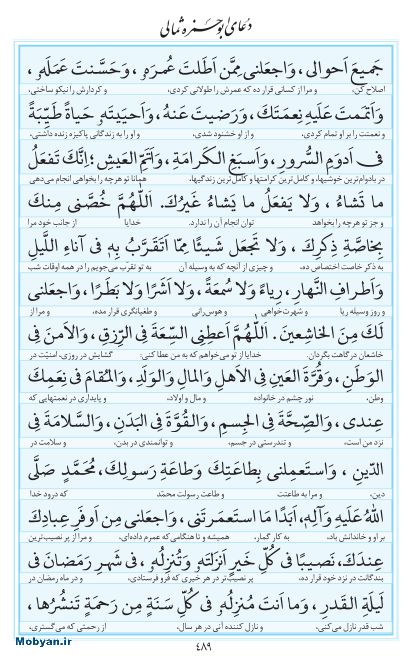 دعای ابوحمزه ثمالی
جَمیعَ اَحوالی، وَاجعَلنی مِمَّن اَطَلتَ عُمرَه، وَحَسَّنتَ عَمَلَه،
اصلاح کن، و مرا از کسانی قرار ده که عمرش را طولانی کردی، و کردارش را نیکو ساختی،
وَاَتمَمتَ عَلَیهِ نِعمَتَکَ، وَرَضیتَ عَنهُ، وَاَحیَیتَه حَیاةً طَیِّبَةً
و نعمتت را بر او تمام کردی، و از او خشنود شدی، و او را به زندگانی پاکیزه زنده داشتی،
فی اَدوَمِ السُّرورِ، وَاَسبَغِ الکَرامَةِ، وَاَتَمِّ العَیشِ؛ اِنَّکَ تَفعَلُ
در بادوام‌ترین خوشیها، و کامل‌ترین کرامتها و کامل‌ترین زندگیها. همانا تو هرچه را بخواهی انجام می‌دهی
ما تَشاءُ، وَلا یَفعَلُ ما یَشاءُ غَیرُکَ. اَللّهُمَّ خُصَّنی مِنکَ
و جز تو هرچه را بخواهد توان انجام آن را ندارد. خدایا از جانب خود مرا
بِخاصَّةِ ذِکرِکَ، وَلا تَجعَل شَیئًا مِمّا اَتَقَرَّبُ بِه فی آناءِ اللَّیلِ
به ذکر خاصت اختصاص ده، و چیزی از آنچه که به وسیله آن به تو تقرب می‌جویم را در همه اوقات شب
وَاَطرافِ النَّهارِ، رِیاءً وَلا سُمعَةً، وَلا اَشَرًا وَلا بَطَرًا، وَاجعَلنی
و روز وسیله ریا و شهرت‌خواهی و هوس‌رانی و طغیانگری قرار مده، و مرا از
لَکَ مِنَ الخاشِعینَ. اَللّهُمَّ اَعطِنِی السِّعَةَ فِی الرِّزقِ، وَالاَمنَ فِی
خاشعان درگاهت بگردان. خدایا از تو می‌خواهم که به من عطا کنی: گشایش در روزی، امنیّت در
الوَطَنِ، وَقُرَّةَ العَینِ فِی الاَهلِ وَالمالِ وَالوَلَدِ، وَالمُقامَ فی نِعَمِکَ
وطن، نور چشم در خانواده و مال و اولاد، و پایداری در نعمتهایی که
عِندی، وَالصِّحَّةَ فِی الجِسمِ، وَالقُوَّةَ فِی البَدَنِ، وَالسَّلامَةَ فِی
نزد من است، و تندرستی در جسم، و توانمندی در بدن، و سلامت در
الدّینِ، وَاستَعمِلنی بِطاعَتِکَ وَطاعَةِ رَسولِکَ، مُحَمَّدٍ صَلَّی
دین، و مرا به طاعتت و طاعت رسولت محمّد که درود خدا
اللهُ عَلَیهِ وَآلِه، اَبَدًا مَا استَعمَرتَنی، وَاجعَلنی مِن اَوفَرِ عِبادِکَ
بر او و خاندانش باد، به کار گمار. همیشه و تا هنگامی که عمرم داده‌ای، و مرا از پر نصیب‌ترین
عِندَکَ، نَصیبًا فی کُلِّ خَیرٍ اَنزَلتَه وَتُنزِلُه، فی شَهرِ رَمَضانَ فی
بندگانت در نزد خود قرار ده، پر نصیب‌تر در هر خیری که فرو فرستادی، و در ماه رمضان در
لَیلَةِ القَدرِ، وَما اَنتَ مُنزِلُه فی کُلِّ سَنَةٍ مِن رَحمَةٍ تَنشُرُها،
شب قدر نازل می‌کنی، و نازل کننده آنی در هر سال، از رحمتی که می‌گستری،
۴۸۹
Mobyan.ir